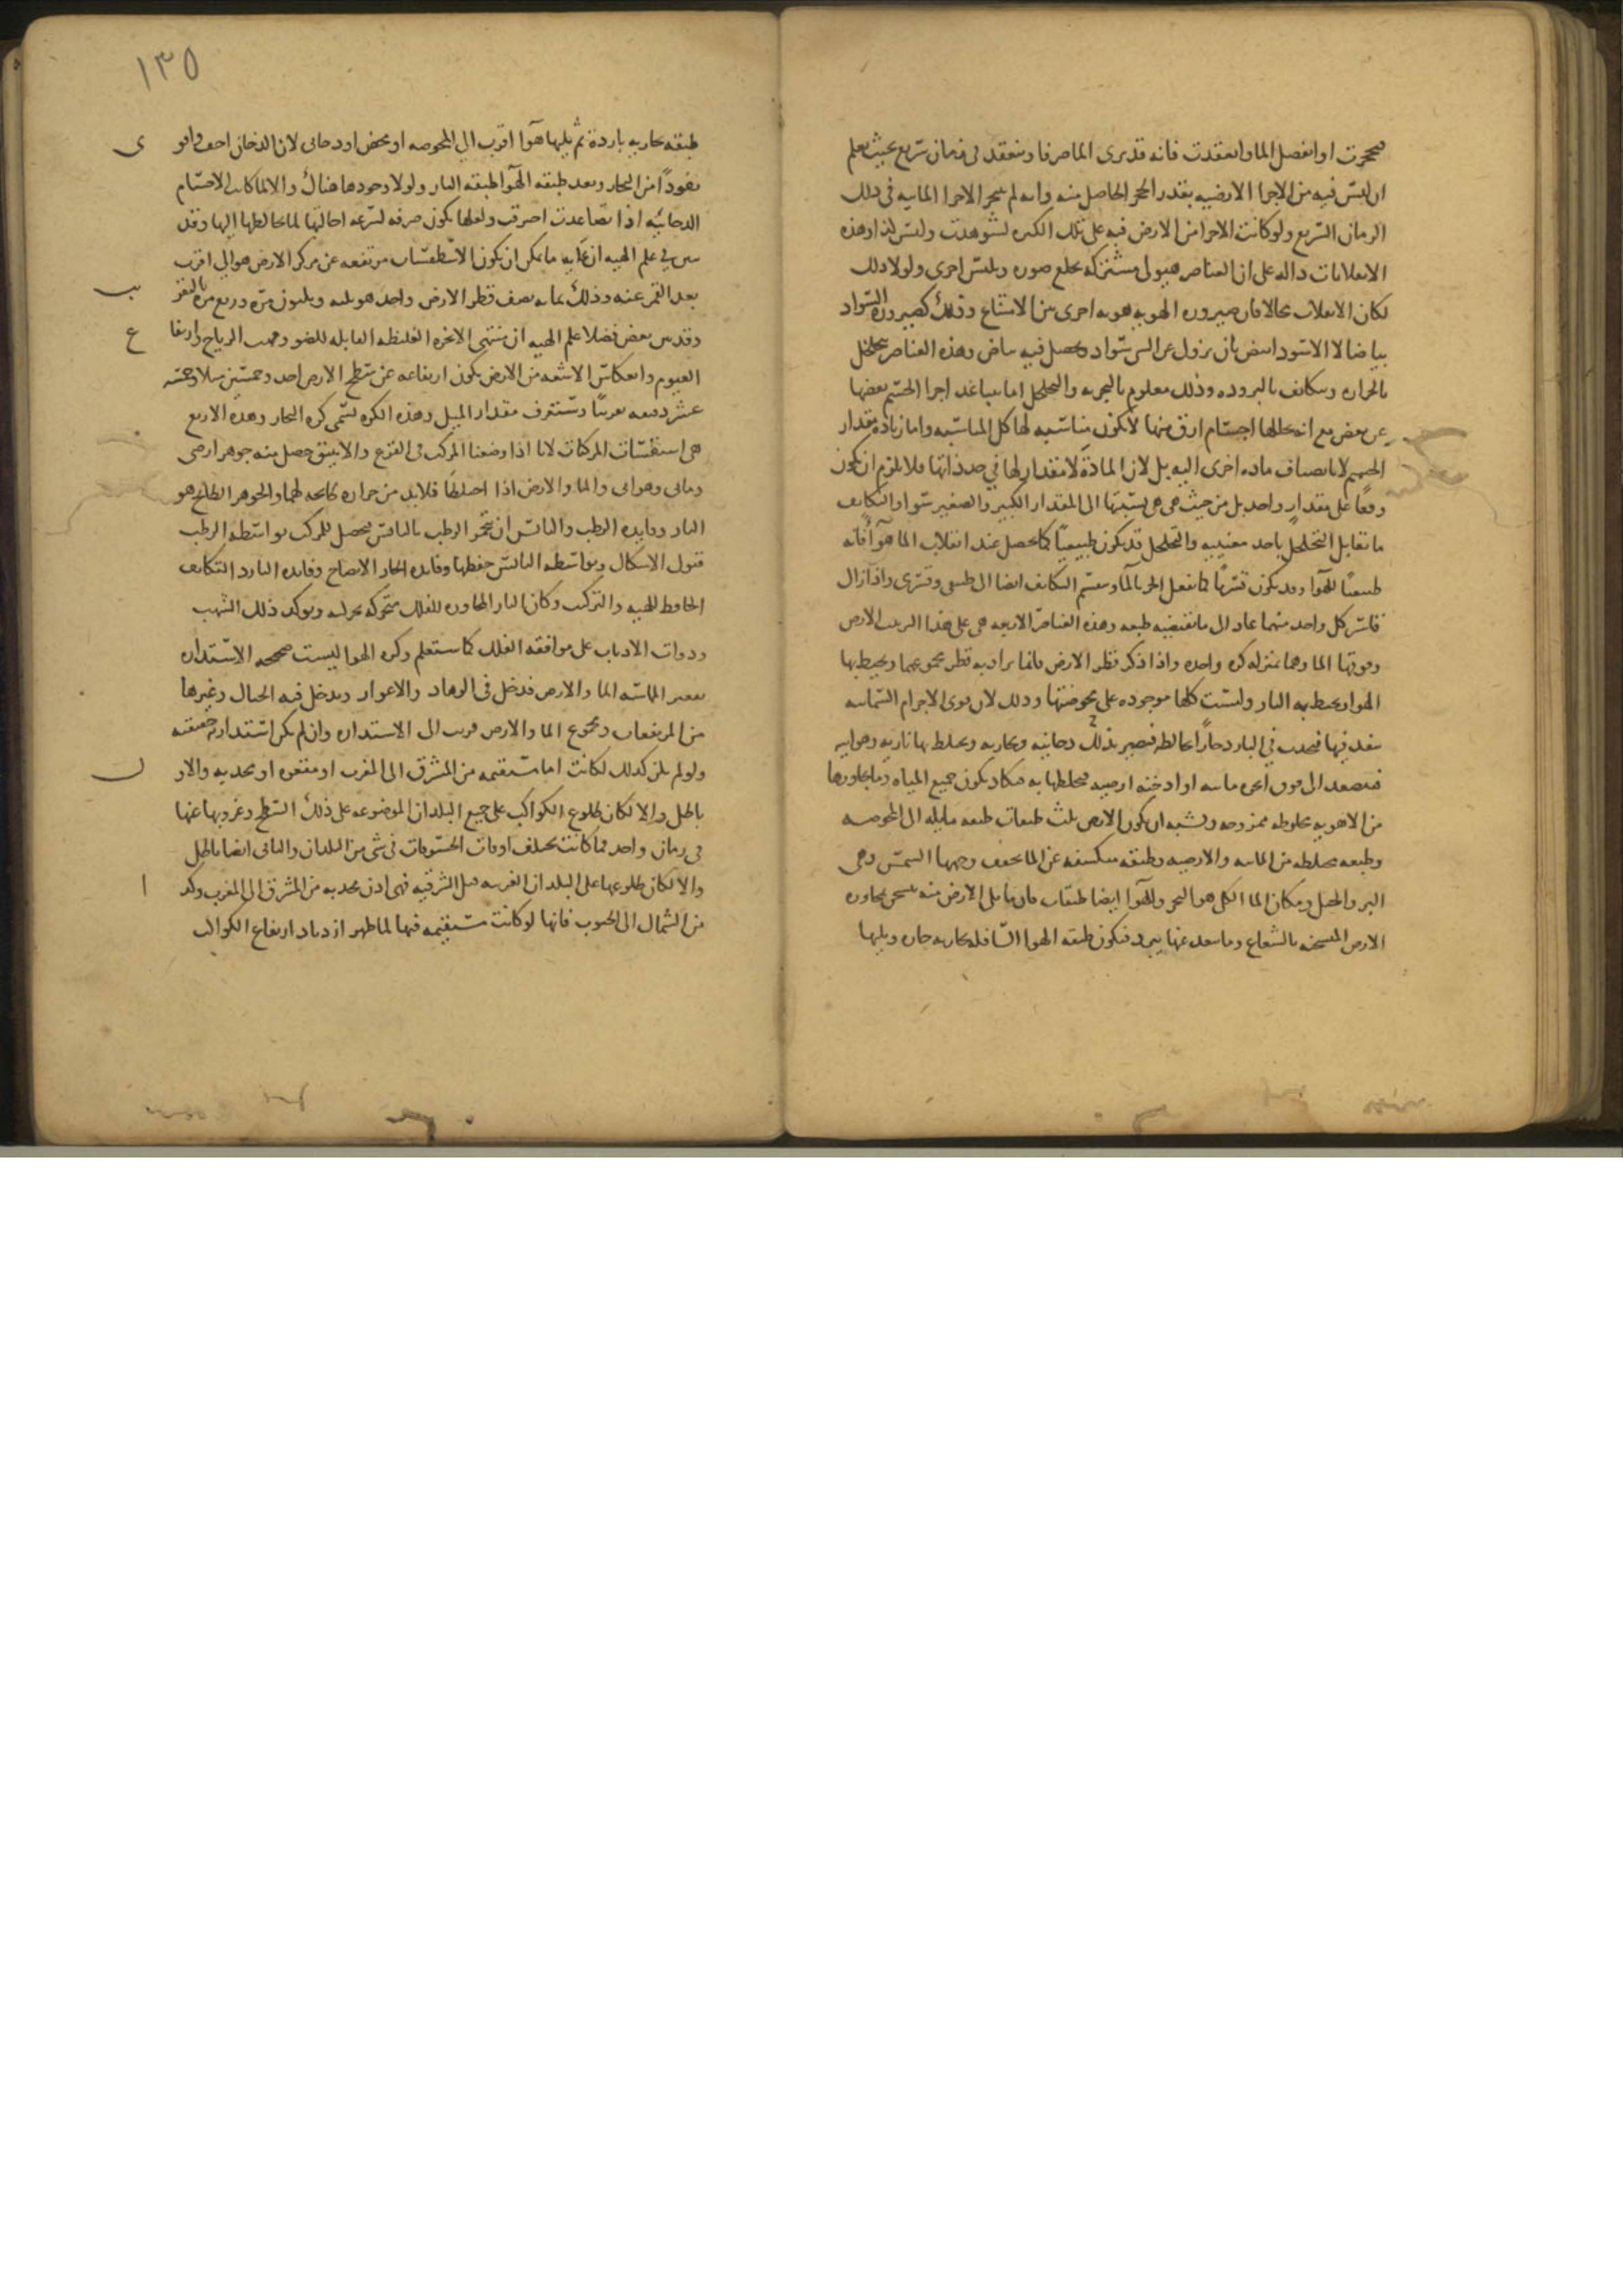 فتحجرت او انفصل الما وانعقدت فانه قد يرى الما صرفا وينعقد فى زمان سريع بحيث يعلم
ان ليس فيه من الاجزا الارضيه بقدر الحجر الحاصل منه وانه لم يتبخر الاجزا المائيه فى ذلك
الزمان السريع ولو كانت الاجزا من الارض فيه على تلك الكثره لشوهدت وليس كذا وهذه
الانقلابات داله على ان العناصر هيولى مشتركه تخلع صوره وتلبس اخرى ولولا ذلك
لكان الانقلاب محالا فان صيروره الهويه هويه اخرى بين الامتناع وذلك كصيروره السواد
بياضا لا الاسود ابيض بان يزول عن السواد ويحصل فيه بياض وهذه العناصر تتخلخل
بالحراره وتتكاثف بالبروده وذلك معلوم بالتجربه والتخلخل اما بتباعد اجزا الجسم بعضها
عن بعض مع تخللها اجسام ارق منها لا تكون مناسبه لها كل المناسبه واما زياده مقدار
الجسم لا بانضياف ماده اخرى اليه بل لان المادة لا مقدار لها فى حد ذاتها فلا يلزم ان تكون
وقفا على مقدار واحد بل من حيث هى هى نسبتها الى المقدار الكبير والصغير سوا والتكاثف
ما يقابل التخلخل باحد معنييه والتخلخل قد يكون طبيعيا كما يحصل عند انقلاب الما هوآ فانه
طبيعيا للهوآ وقد يكون قسريا كما يفعل الحر بالمآ وينقسم التكاثف ايضا الى طبيعى وقسرى واذا زال
قاسر كل واحد منهما عاد الى ما تقتضيه طبعه وهذه العناصر الاربعه هى على هذا الترتيب الارض
وفوقها الما وهما بمنزله كره واحده واذا ذكر قطر الارض فانما يراد به قطر مجموعهما ويحيط بها
الهوا ويحيط به النار وليست كلها موجوده على محوضتها وذلك لان قوى الاجرام السمائيه
تنفذ فيها فتحدث فى البارد حارا يخالطه فتصير بذلك دخانيه وبخاريه وتختلط بها ناريه وهوائيه
فتصعد الى فوق ابخره مائيه او ادخنه ارضيه فتخلطها به فيكاد يكون جميع المياه وما يجاورها
من الاهويه مخلوطه ممزوجه ويشبه ان يكون الارض ثلث طبقات طبقه مايله الى المحوضه
وطبقه مختلطه من المائيه والارضيه وطبقه منكشفه عن الما يجفف وجهها الشمس وهى
البر والجبل ومكان الما الكل هو البحر وللهوآ ايضا طبقات فان ما يلى الارض منه يتسخن بمجاوره
الارض المتسخنه بالشعاع وما يبعد عنها يبرد فتكون طبقه الهوا السافله بخاريه حاره ويليها
١٣٥
طبقه بخاريه باردة ثم يليها هوآ اقرب الى المحوضه او محض او دخانى لان الدخان اخف واقو
نفوذًا من البخار وبعد طبقه الهوآ طبقه النار ولولا وجودها هناك والا لما كانت الاجسام
الدخانيه اذا تصاعدت احترقت ولعلها تكون صرفه لسرعه احالتها لما يخالطها اليها وقد
تبين فى علم الهيه ان غايه ما يمكن ان يكون الاسطقسات مرتفعه عن مركز الارض هو الى اقرب
بعد القمر عنه وذلك بما به نصف قطر الارض واحد هو ثلثه وثلثون مره وربع مره بالتقر
وقد بين بعض فضلا علم الهيه ان منتهى الابخره الغليظه القابله للضو ومهب الرياح وارتفا
الغيوم وانعكاس الاشعه من الارض يكون ارتفاعه عن سطح الارض احد وخمسين ميلا وخمسه
عشر دقيقه تقريبا وستعرف مقدار الميل وهذه الكره تسمى كره البخار وهذه الاربع
هى اسطقسات المركبات لانا اذا وضعنا المركب فى القرع والانبيق حصل منه جوهر ارضى
ومائى وهوائى والما والارض اذا اختلطا فلابد من حراره طابخه لهما والجوهر الطابخ هو
النار وفايده الرطب واليابس ان تخمر الرطب باليابس يحصل للمركب بواسطه الرطب
قبول الاشكال وبواسطه اليابس حفظها وفايده الحار الانضاج وفايده البارد التكاثف
الحافظ للهيه والتركيب وكان النار المجاوره للفلك متحركه بحركته ويوكد ذلك الشهب
وذوات الاذناب على موافقه الفلك كما ستعلم وكره الهوا ليست صحيحه الاستداره
بتقعير المماسه الما والارض فتدخل فى الوهاد والاغوار ويدخل فيه الجبال وغيرها
من المرتفعات ومجموع الما والارض قريب الى الاستداره وان لم يكن استدارته حقيقيه
ولو لم يكن كذلك لكانت اما مستقيمه من المشرق الى المغرب او مقعره او محدبه والاو
باطل والا لكان طلوع الكواكب على جميع البلدان الموضوعه على ذلك السطح وغروبها عنها
فى زمان واحد فما كانت تختلف اوقات الخسوفات فى شى من البلدان والثانى ايضا باطل
والا لكان طلوعها على البلدان الغربيه قبل الشرقيه فهى اذن محدبه من المشرق الى المغرب وكذ
من الشمال الى الجنوب فانها لو كانت مستقيمه فيها لما ظهر ازدياد ارتفاع الكواكب